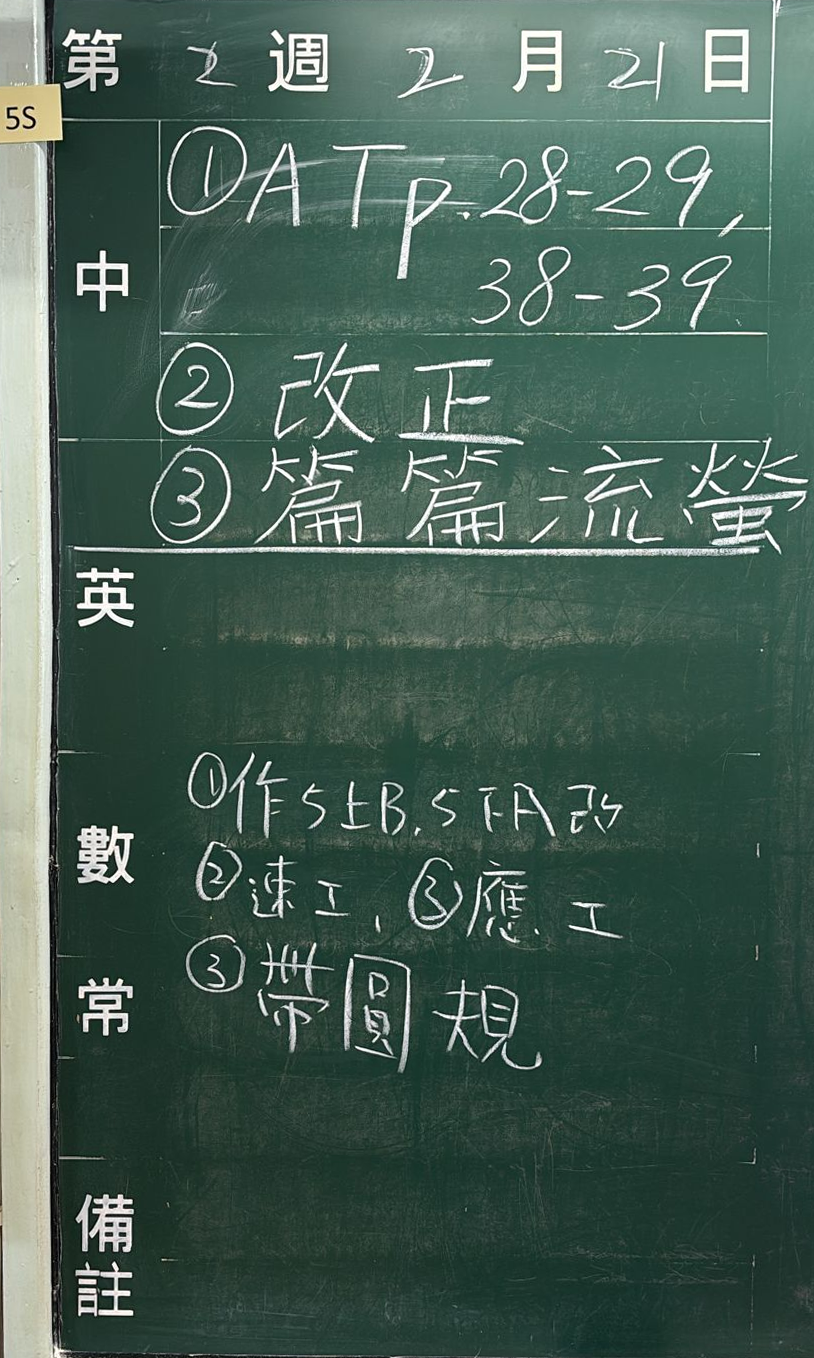 第 2 週 2 月 21 日
5S
中
①A T p.28-29,
38-39
② 改正
③ 篇篇流螢
英
數
①作5上B.5下A改
②速工,③應工
常
③帶圓規
備註